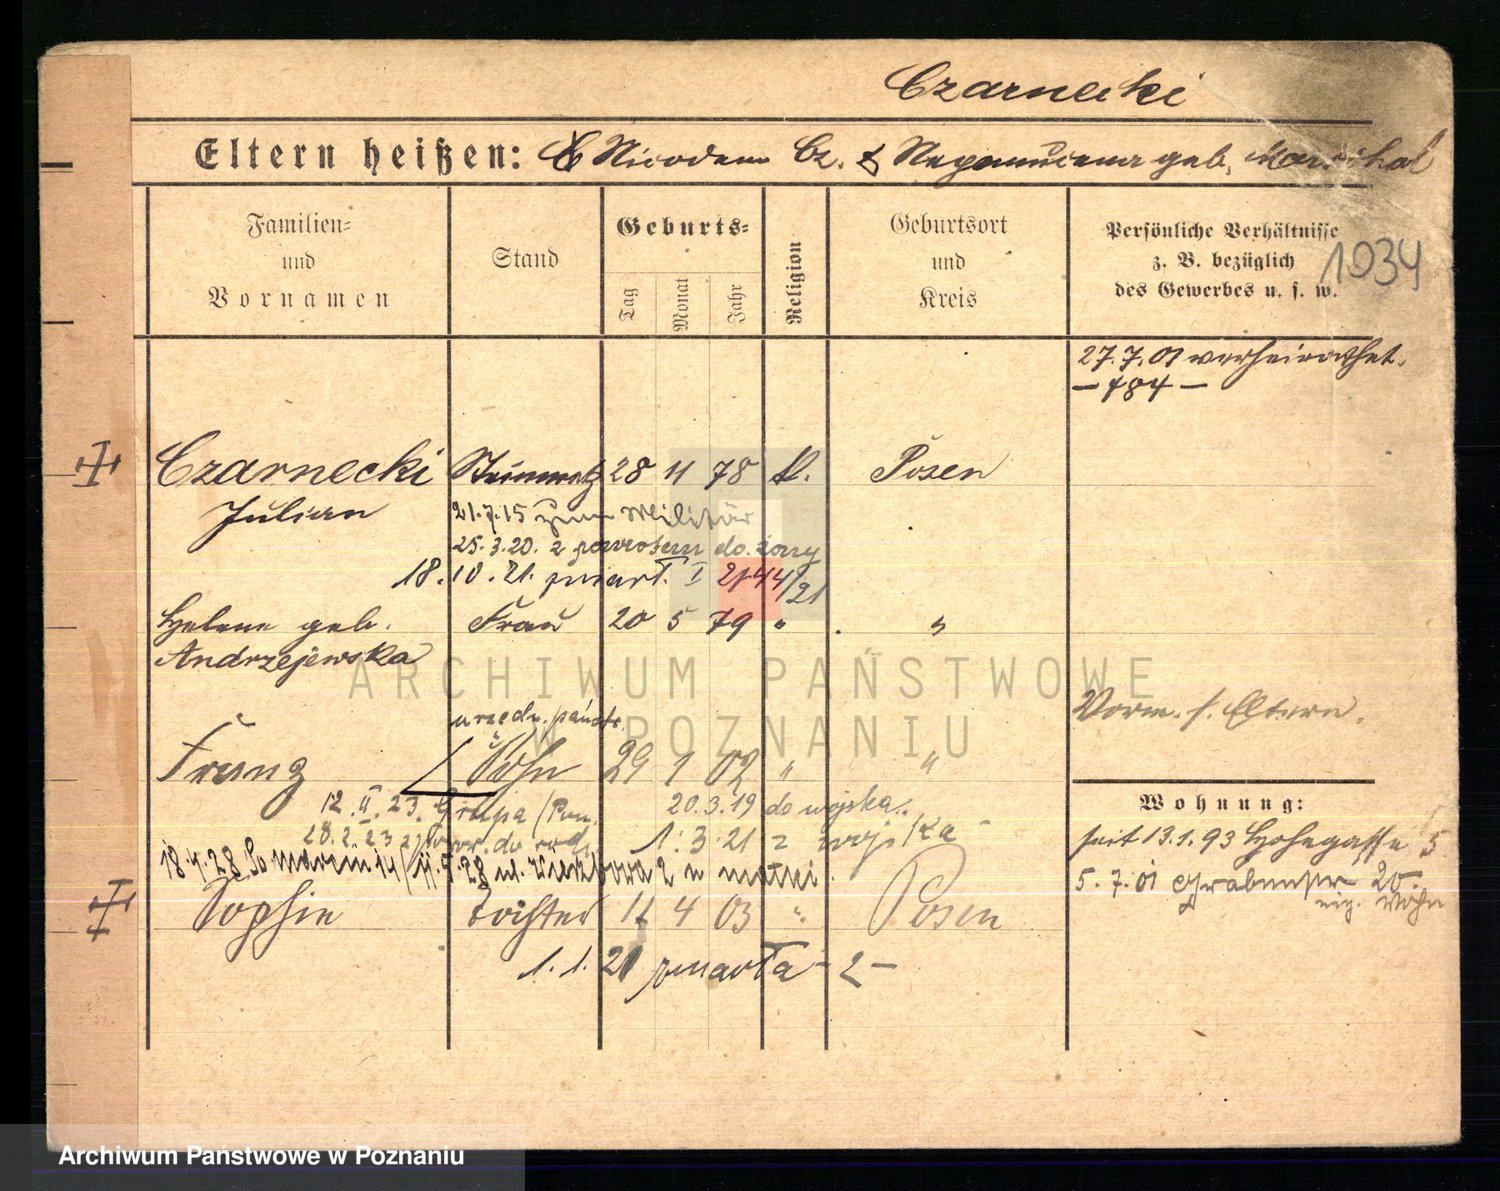 Czarnecki
Eltern heißen: Nicodem Cz. Nepomucena geb.
Familien- und Vornamen
Stand
Geburts-
Tag
Monat
Jahr
Religion
Geburtsort und Kreis
Persönliche Verhältnisse z. B. bezüglich des Gewerbes u. s. w.
1034
27.7.01 verheirathet.
Czarnecki Steinmetz 28 11 78 k. Posen
Julian 21.7.15 zum Militär
25.3.20. z powrotem do żony
18.10.21. zmarł I 2144/21
Helene geb. Frau 20 5 79 " "
Andrzejewska
Vorm. s. Eltern.
urzędn. państ.
Franz Sohn 29 1 02 " "
12.II.23. Grupa / Pom. 20.3.19 do wojska.
28.2.23 1.3.21 z wojska
18.4.28 So marcin 14 / 11.5.28 ul. Wierzbowa 2 u matki.
Sophie Tochter 4 03 " Posen
1.1.21 zmarła - 2 -
Wohnung:
seit 13.1.93 Hohegasse 5
5.7.01 Grabenstr 20.
ARCHIWUM PAŃSTWOWE
W POZNANIU
Archiwum Państwowe w Poznaniu